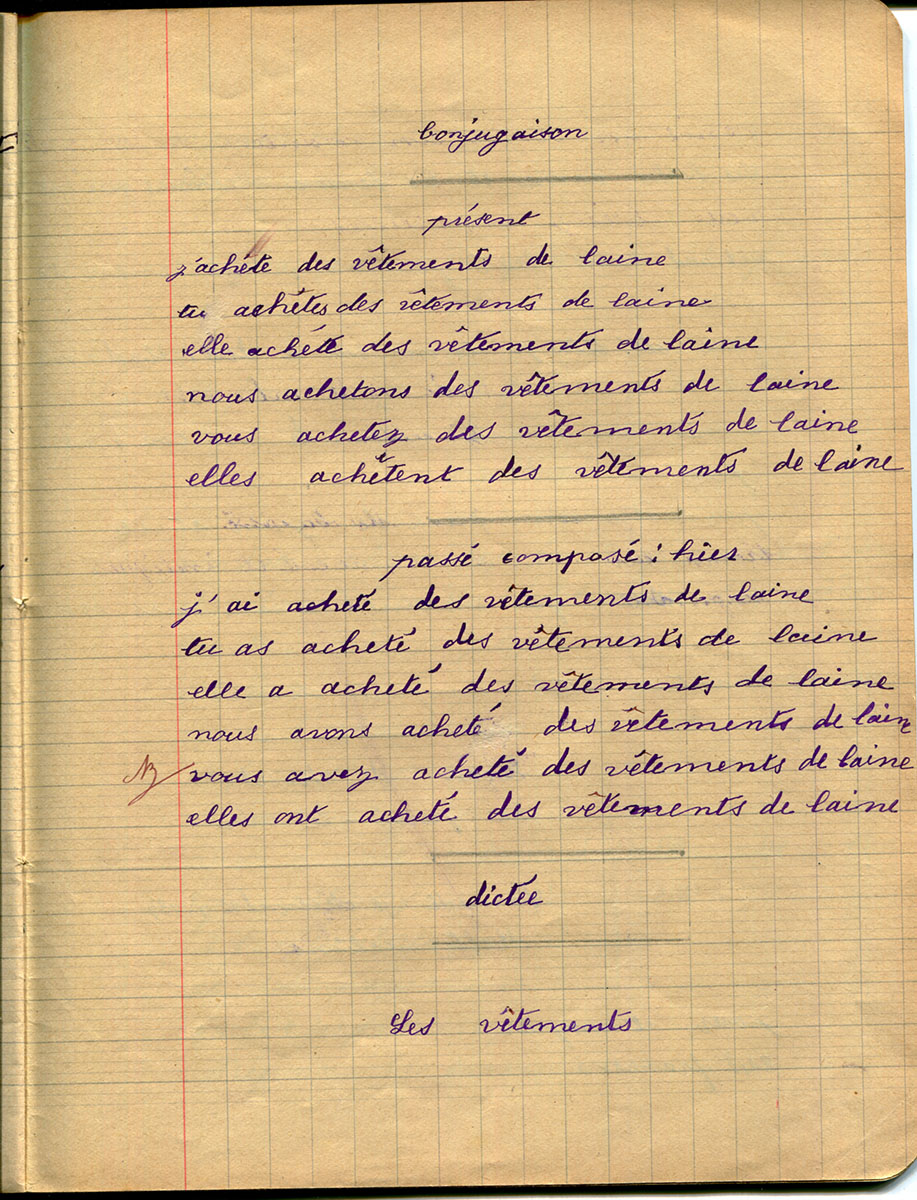 Conjugaison
présent
j'achéte des vêtements de laine
tu achêtes des vêtements de laine
elle achéte des vêtements de laine
nous achetons des vêtements de laine
vous achetez des vêtements de laine
elles achêtent des vêtements de laine
passé composé : hier
j'ai acheté des vêtements de laine
tu as acheté des vêtements de laine
elle a acheté des vêtements de laine
nous avons acheté des vêtements de laine
vous avez acheté des vêtements de laine
elles ont acheté des vêtements de laine
dictée
Les vêtements